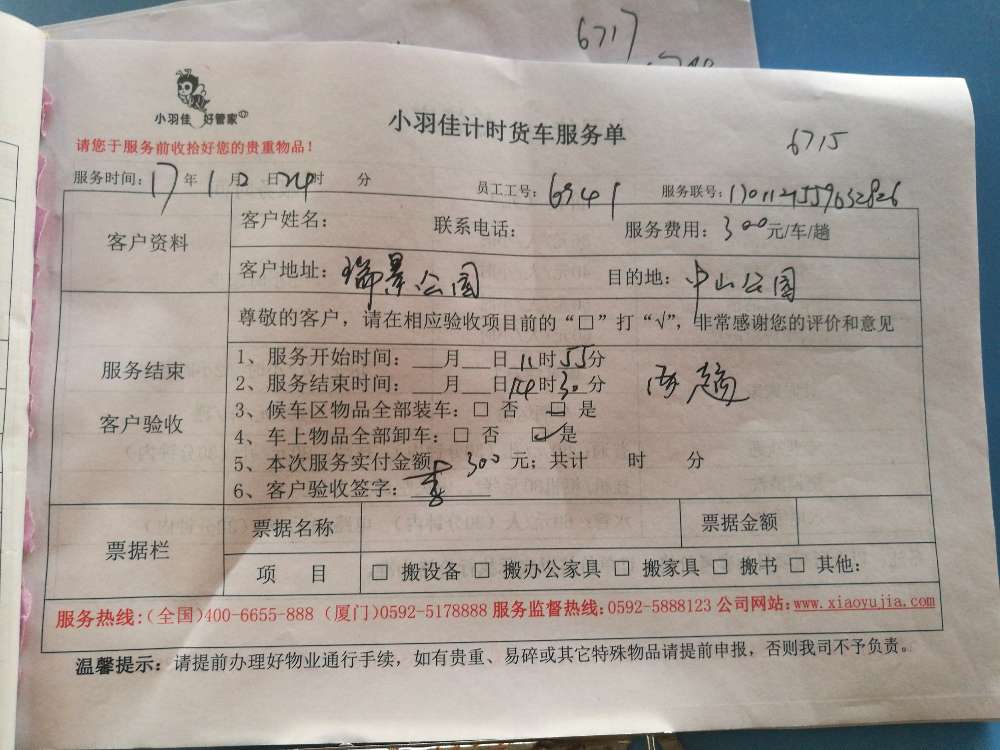 6717
小羽佳 好管家
小羽佳计时货车服务单
6715
请您于服务前收拾好您的贵重物品！
服务时间：17年1月2日 时 分 员工工号：6941 服务联号：
客户资料 客户姓名： 联系电话： 服务费用：300元/车/趟
客户地址：瑞景公园 目的地：中山公园
服务结束 客户验收 尊敬的客户，请在相应验收项目前的“□”打“√”，非常感谢您的评价和意见
1、服务开始时间：___月___日11时55分
2、服务结束时间：___月___日14时30分 两趟
3、候车区物品全部装车：□ 否 □ 是
4、车上物品全部卸车：□ 否 ☑ 是
5、本次服务实付金额 300 元；共计 时 分
6、客户验收签字：李
票据栏 票据名称 票据金额
项 目 □ 搬设备 □ 搬办公家具 □ 搬家具 □ 搬书 □ 其他：
服务热线：（全国）400-6655-888（厦门）0592-5178888 服务监督热线：0592-5888123 公司网站：www.xiaoyujia.com
温馨提示：请提前办理好物业通行手续，如有贵重、易碎或其它特殊物品请提前申报，否则我司不予负责。